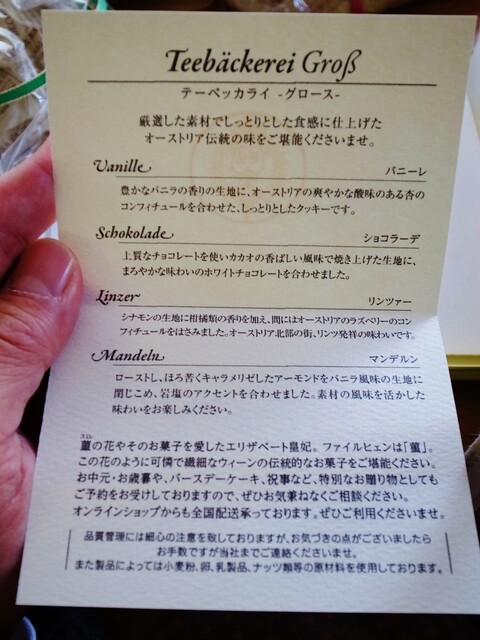 Teebäckerei Groß
テーベッカライ -グロース-
厳選した素材でしっとりとした食感に仕上げた
オーストリア伝統の味をご堪能くださいませ。
Vanille バニーレ
豊かなバニラの香りの生地に、オーストリアの爽やかな酸味のある杏の
コンフィチュールを合わせた、しっとりとしたクッキーです。
Schokolade ショコラーデ
上質なチョコレートを使いカカオの香ばしい風味で焼き上げた生地に、
まろやかな味わいのホワイトチョコレートを合わせました。
Linzer リンツァー
シナモンの生地に柑橘類の香りを加え、間にはオーストリアのラズベリーのコン
フィチュールをはさみました。オーストリア北部の街、リンツ発祥の味わいです。
Mandeln マンデルン
ローストし、ほろ苦くキャラメリゼしたアーモンドをバニラ風味の生地に
閉じこめ、岩塩のアクセントを合わせました。素材の風味を活かした
味わいをお楽しみください。
菫の花やそのお菓子を愛したエリザベート皇妃。ファイルヒェンは「菫」。
この花のように可憐で繊細なウィーンの伝統的なお菓子をご堪能ください。
お中元・お歳暮や、バースデーケーキ、祝事など、特別なお贈り物としても
ご予約をお受けしておりますので、ぜひお気兼ねなくご相談ください。
オンラインショップからも全国配送承っております。ぜひご利用くださいませ。
品質管理には細心の注意を致しておりますが、お気づきの点がございましたら
お手数ですが当社までご連絡くださいませ。
また製品によっては小麦粉、卵、乳製品、ナッツ類等の原材料を使用しております。